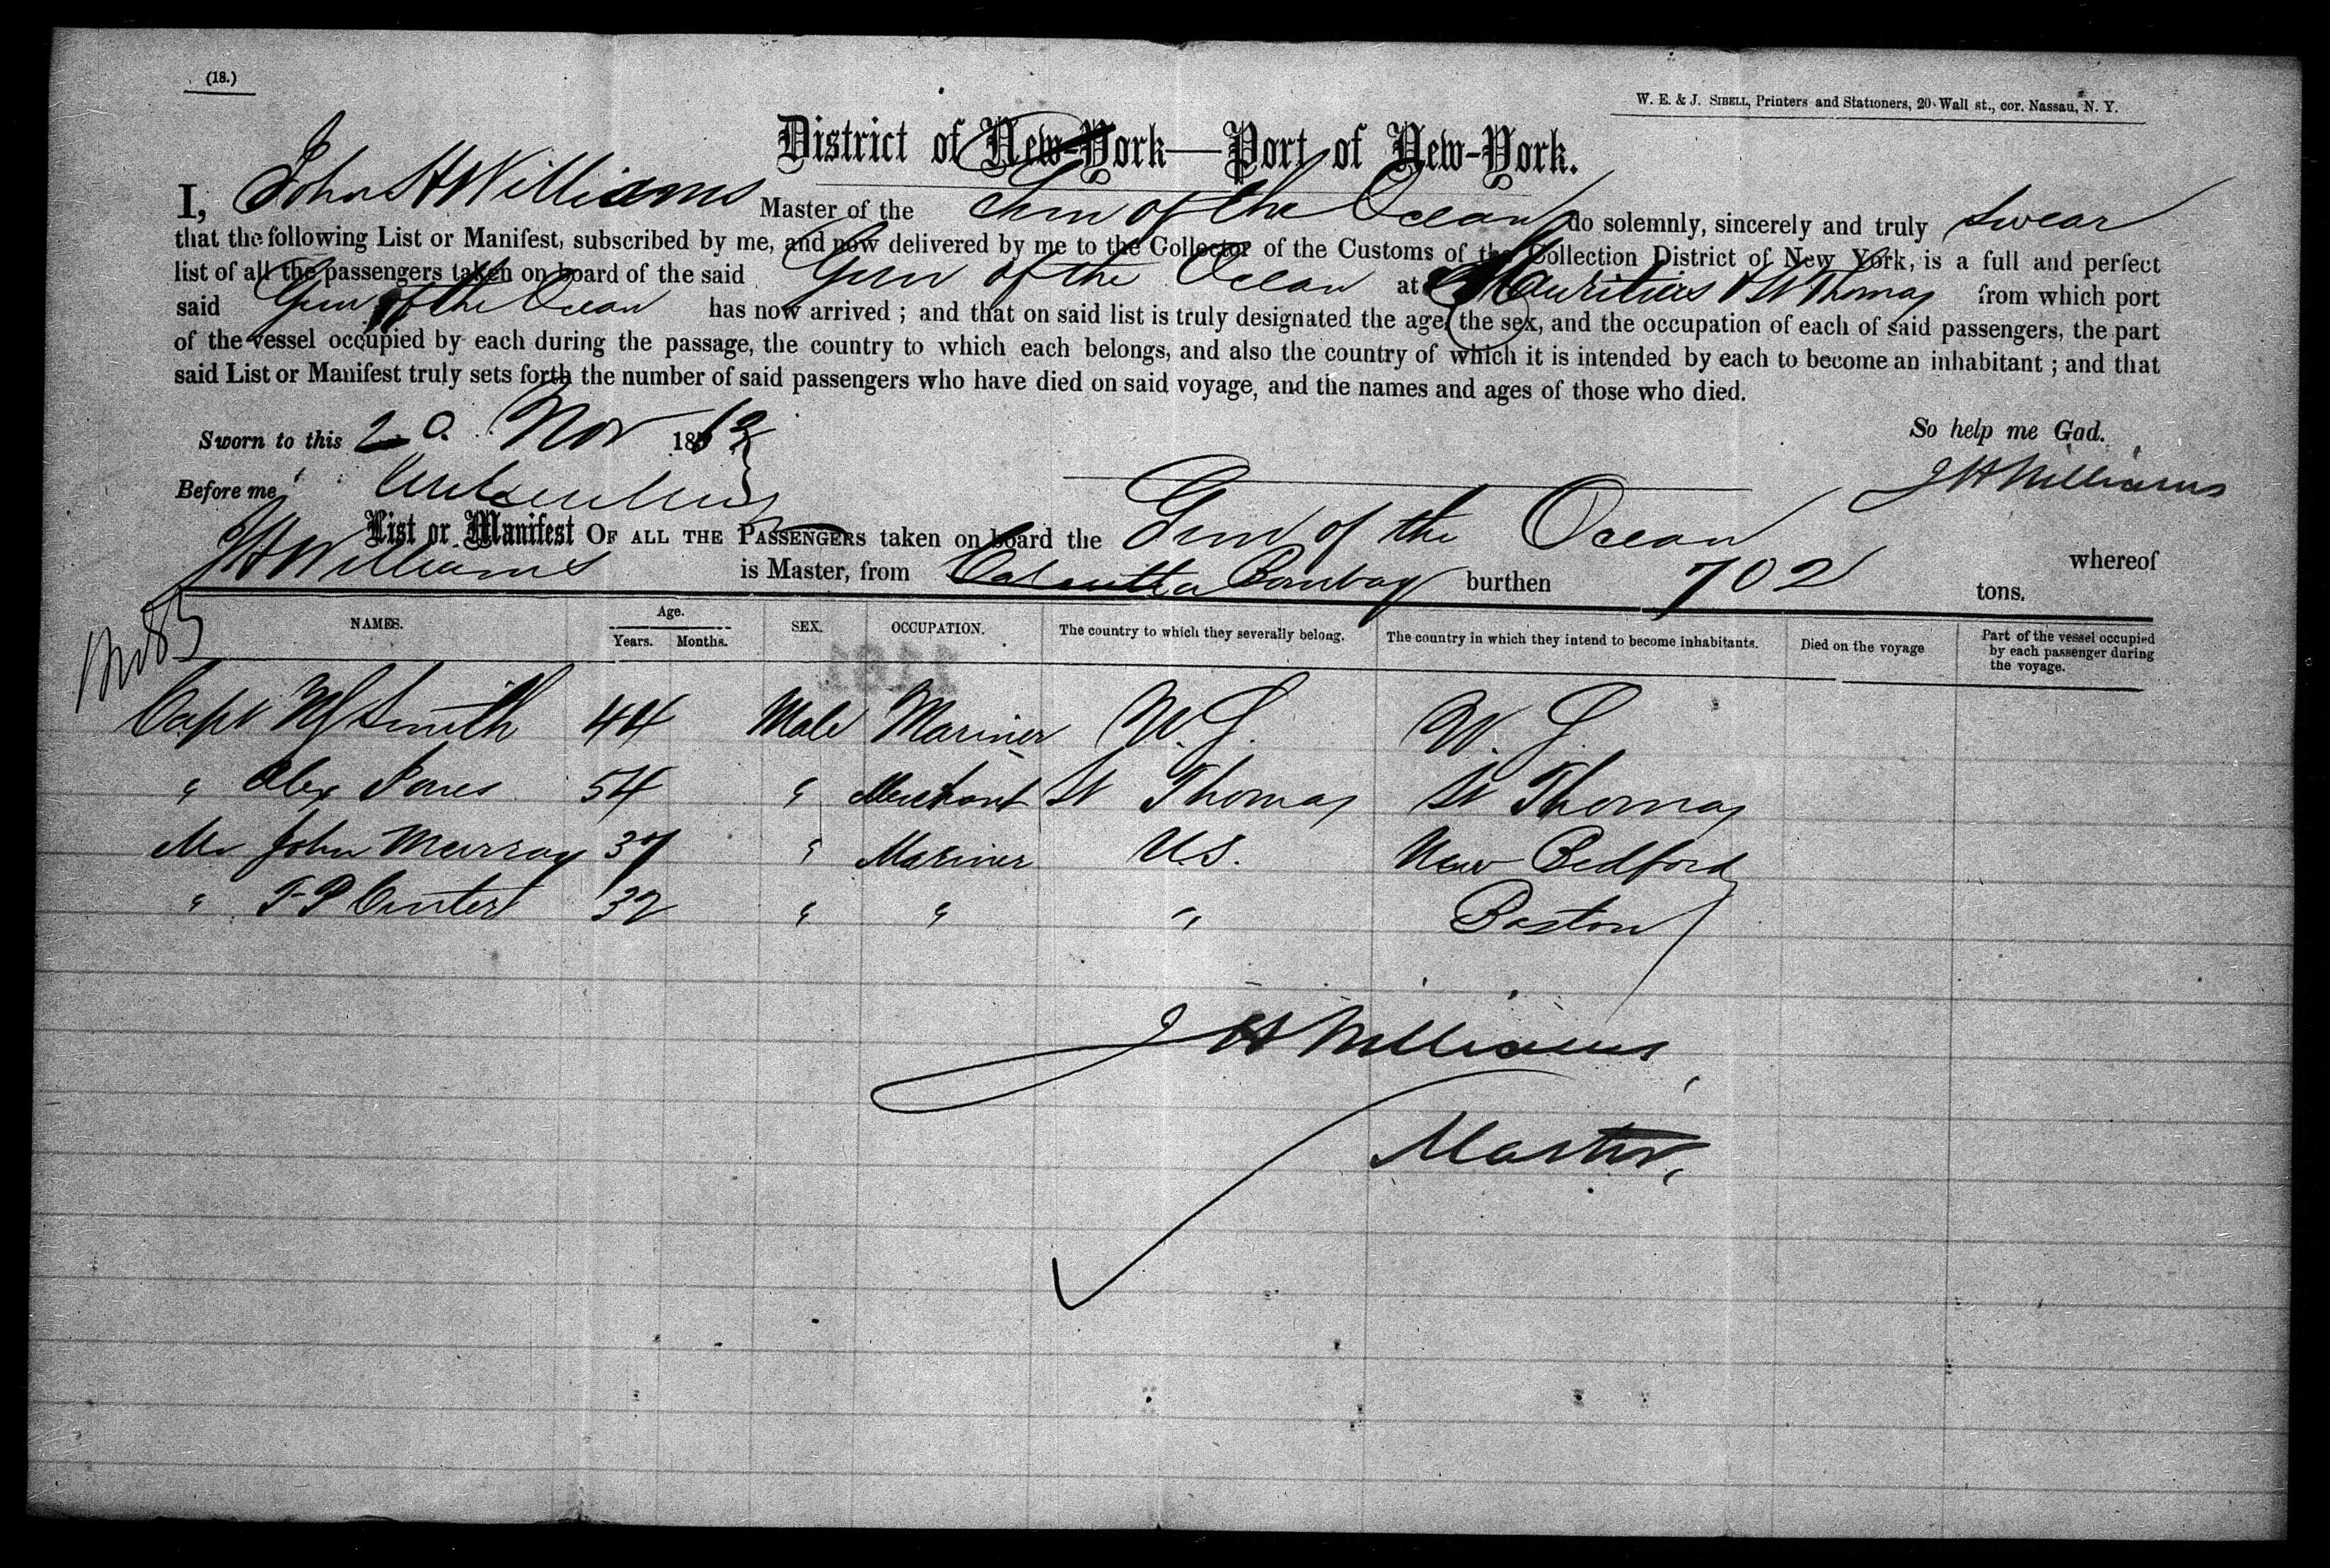 (18.)
W. E. & J. SIBELL, Printers and Stationers, 20 Wall st., cor. Nassau, N. Y.
District of New-York—Port of New-York.
I, John H Williams Master of the Gem of the Ocean do solemnly, sincerely and truly swear
that the following List or Manifest, subscribed by me, and now delivered by me to the Collector of the Customs of the Collection District of New York, is a full and perfect
list of all the passengers taken on board of the said Gem of the Ocean at Mauritius & St Thomas from which port
said Gem of the Ocean has now arrived ; and that on said list is truly designated the age, the sex, and the occupation of each of said passengers, the part
of the vessel occupied by each during the passage, the country to which each belongs, and also the country of which it is intended by each to become an inhabitant ; and that
said List or Manifest truly sets forth the number of said passengers who have died on said voyage, and the names and ages of those who died.
Sworn to this 20. Nov 1862
So help me God.
Before me
J H Williams
List or Manifest OF ALL THE PASSENGERS taken on board the Gem of the Ocean whereof
J H Williams is Master, from Calcutta Bombay burthen 702 tons.
NAMES. Age. Years. Months. SEX. OCCUPATION. The country to which they severally belong. The country in which they intend to become inhabitants. Died on the voyage Part of the vessel occupied by each passenger during the voyage.
1181
Capt Smith 44 Male Mariner
" Alex Jones 54 " Merchant St Thomas St Thomas
Mr John Murray 37 " Mariner U.S. New Bedford
" T P Center 32 " " " Boston
J H Williams
Master,